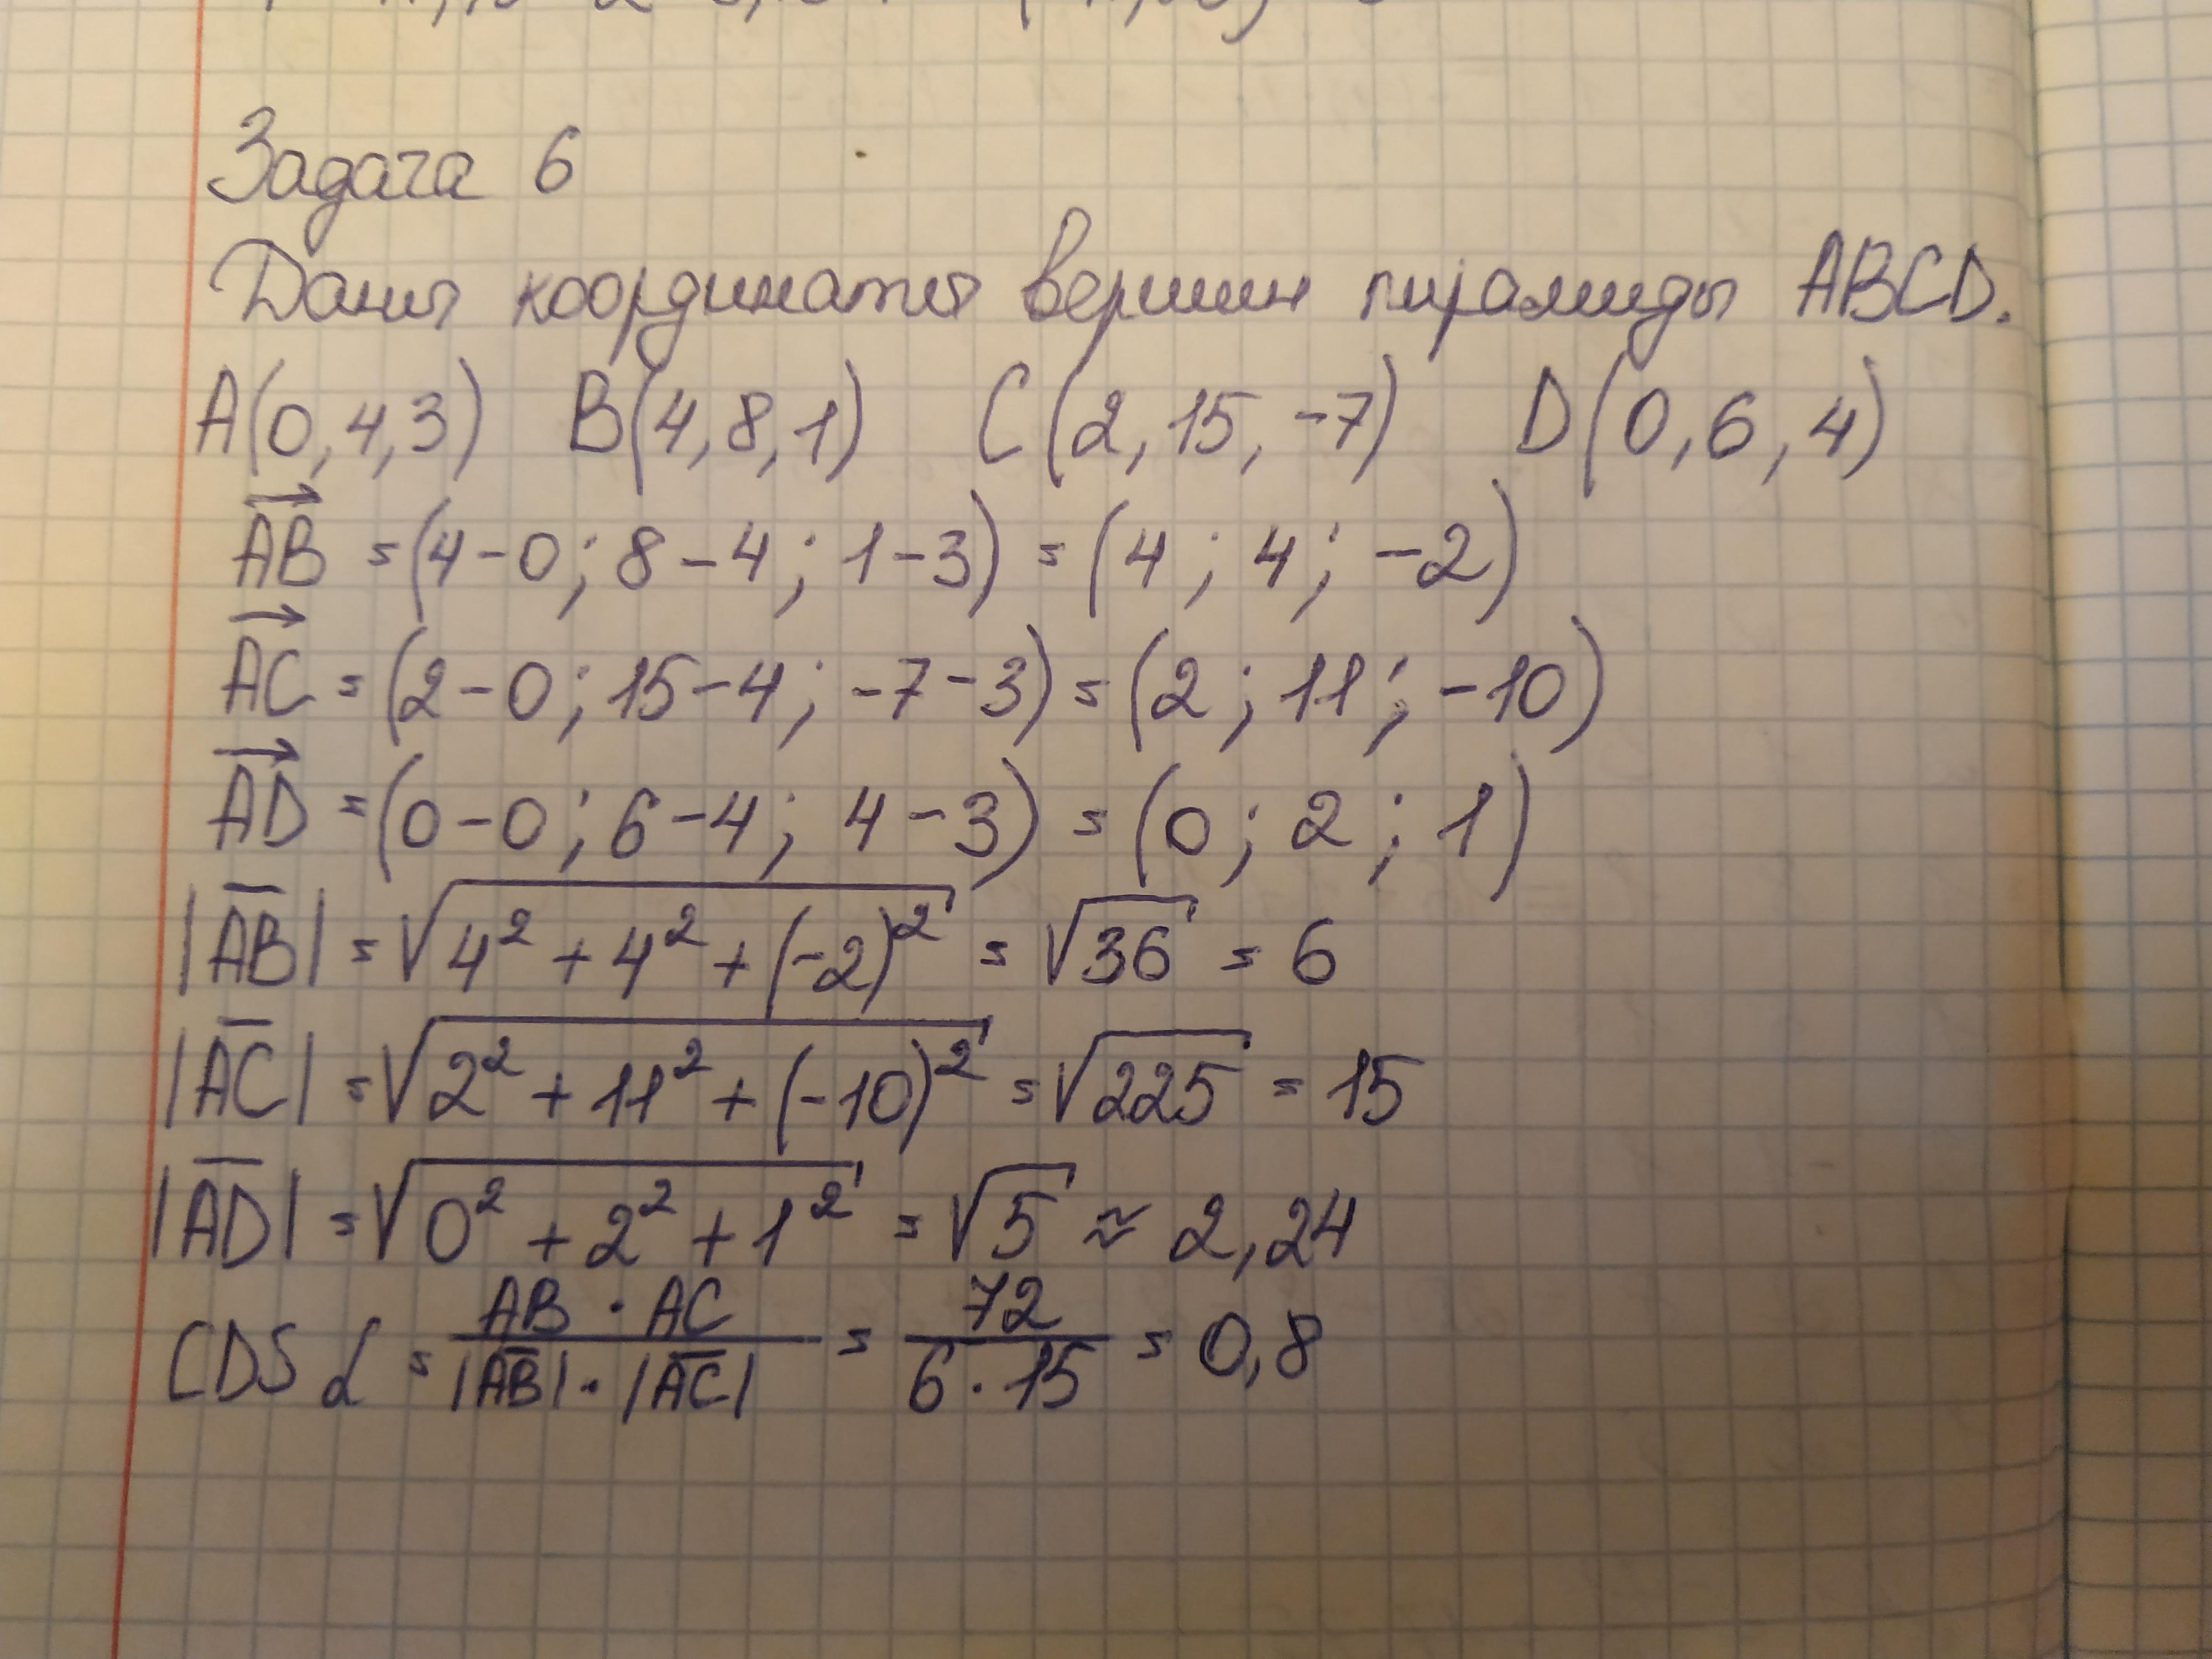 Задача 6
Даны координаты вершин пирамиды ABCD.
A(0,4,3) B(4,8,1) C(2,15,-7) D(0,6,4)
AB = (4-0; 8-4; 1-3) = (4; 4; -2)
AC = (2-0; 15-4; -7-3) = (2; 11; -10)
AD = (0-0; 6-4; 4-3) = (0; 2; 1)
|AB| = √4² + 4² + (-2)² = √36 = 6
|AC| = √2² + 11² + (-10)² = √225 = 15
|AD| = √0² + 2² + 1² = √5 ≈ 2,24
COS α = AB · AC / |AB| · |AC| = 72 / 6 · 15 = 0,8